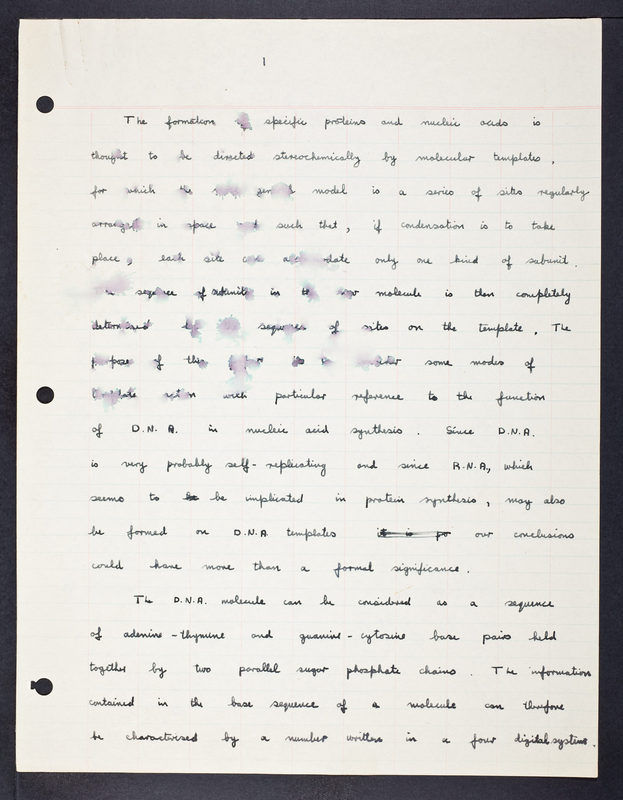 1
The formation of specific proteins and nucleic acids is
thought to be directed stereochemically by molecular templates,
for which the general model is a series of sites regularly
arranged in space and such that, if condensation is to take
place, each site can only one kind of subunit.
The sequence of subunits in the new molecule is then completely
determined by the sequence of sites on the template. The
purpose of this is some modes of
template action with particular reference to the function
of D.N.A. in nucleic acid synthesis. Since D.N.A.
is very probably self-replicating and since R.N.A., which
seems to be be implicated in protein synthesis, may also
be formed on D.N.A templates it is po our conclusions
could have more than a formal significance.
The D.N.A. molecule can be considered as a sequence
of adenine-thymine and guanine-cytosine base pairs held
together by two parallel sugar phosphate chains. The information
contained in the base sequence of a molecule can therefore
be characterised by a number written in a four digital system.